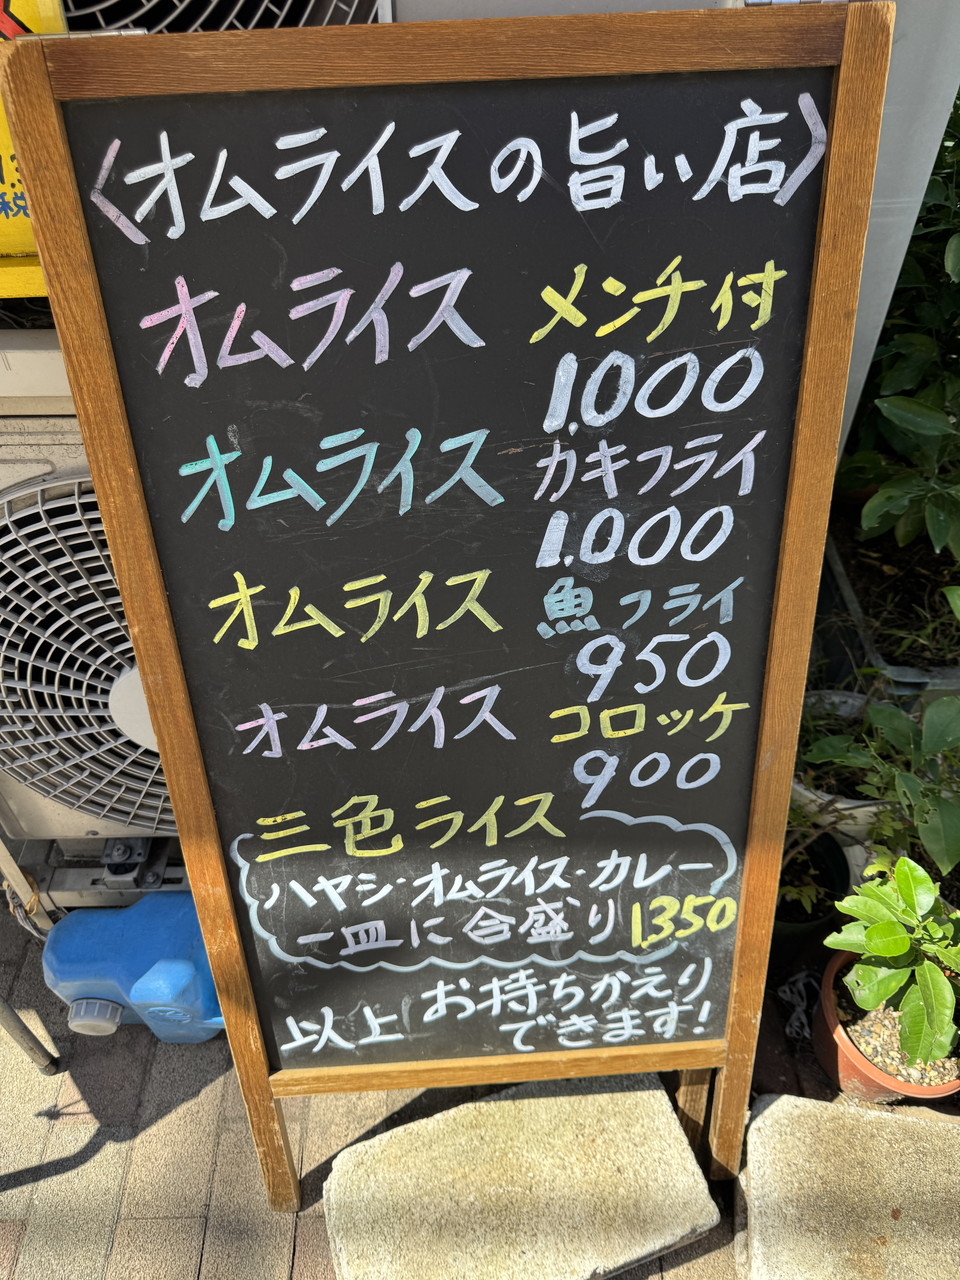 〈オムライスの旨い店〉
オムライス メンチ付
1.000
オムライス カキフライ
1.000
オムライス 魚フライ
950
オムライス コロッケ
900
三色ライス
ハヤシ・オムライス・カレー
一皿に合盛り 1350
以上 お持ちかえり
できます!
税